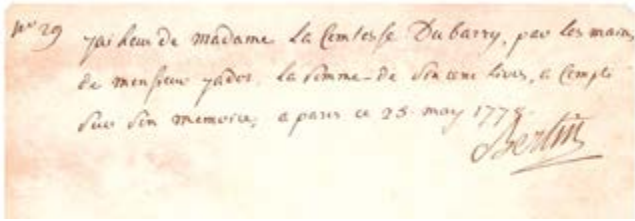 N° 29 J'ai Reçu de Madame La Comtesse Dubarry, par les mains
de monsieur La Somme de livres, a Compte
Sur Son memoire, a paris ce 25 may
Bertin